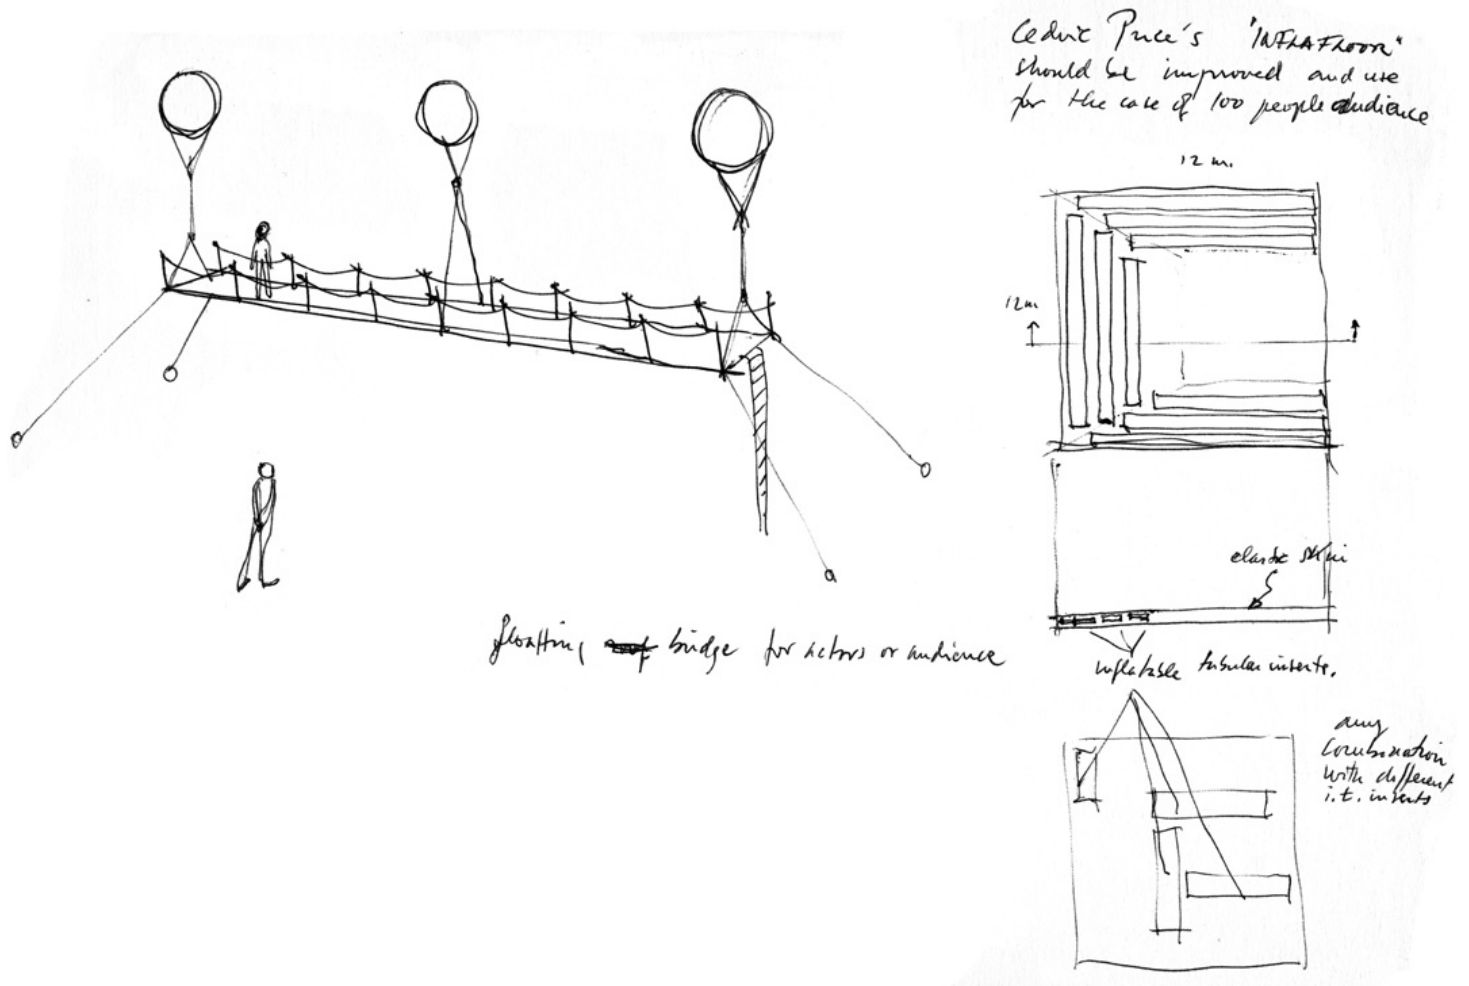 Cedric Price's "INFLAFLOOR"
should be improved and use
for the case of 100 people audience
12 m.
12m
elastic skin
inflatable tubular inserts.
any
combination
with different
i.t. inserts
floatting bridge for actors or audience